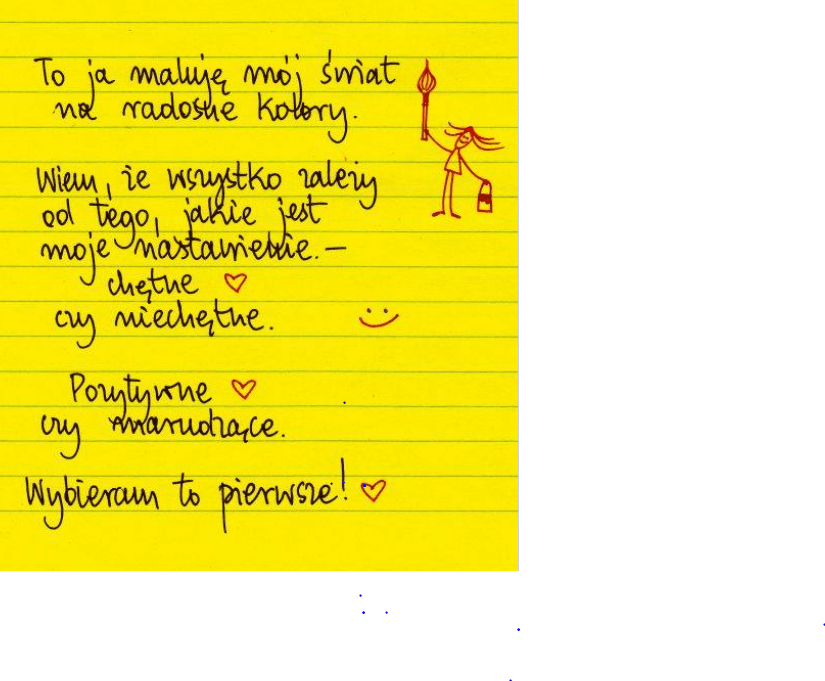 To ja maluję mój świat
na radosne kolory.
Wiem, że wszystko zależy
od tego, jakie jest
moje nastawienie. –
chętne ♡
czy niechętne.
Pozytywne ♡
czy marudzące.
Wybieram to pierwsze! ♡